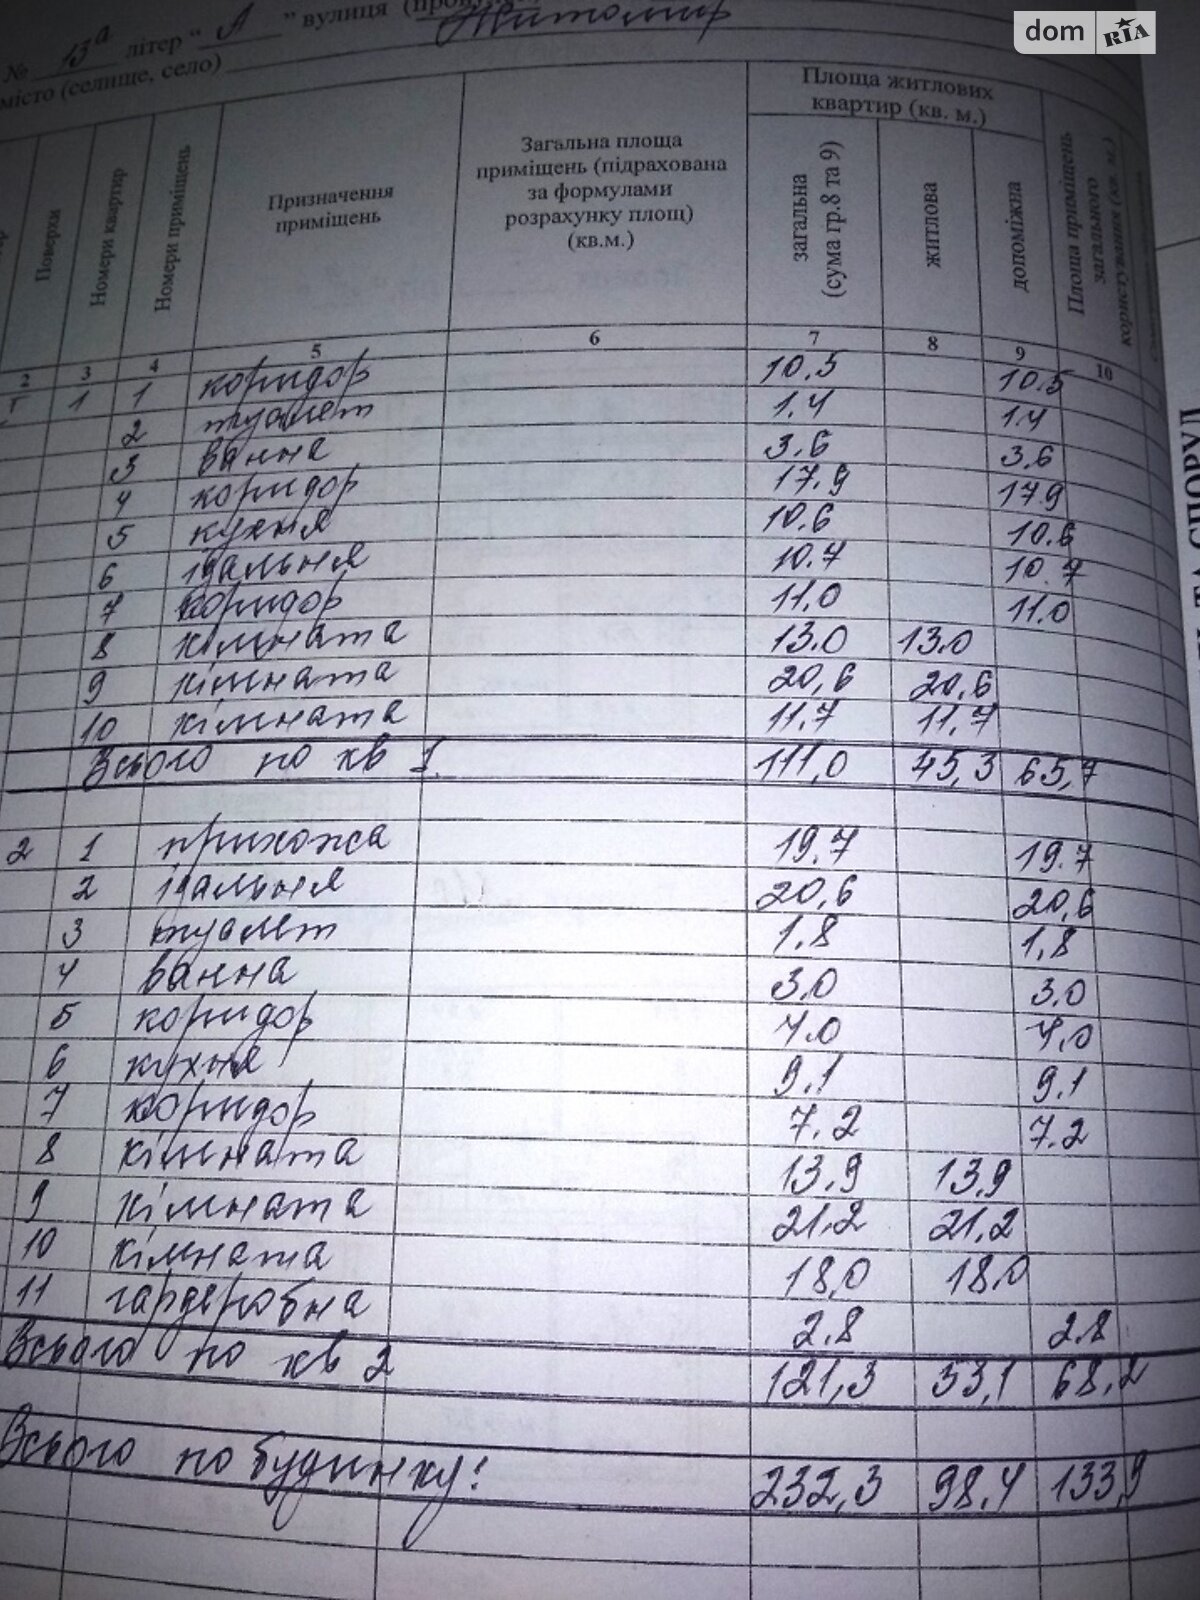 dom RIA
№ 13а літер “ А ” вулиця
місто (селище, село) Житомир
Поверхи
Номери квартир
Номери приміщень
Призначення приміщень
Загальна площа приміщень (підрахована за формулами розрахунку площ) (кв.м.)
Площа житлових квартир (кв. м.)
загальна (сума гр.8 та 9)
житлова
допоміжна
Площа приміщень загального користування (кв. м.)
2 3 4 5 6 7 8 9 10
1 1 коридор 10.5 10.5
2 туалет 1.4 1.4
3 ванна 3.6 3.6
4 коридор 17.9 17.9
5 кухня 10.6 10.6
6 їдальня 10.7 10.7
7 коридор 11.0 11.0
8 кімната 13.0 13.0
9 кімната 20,6 20,6
10 кімната 11.7 11.7
Всього по кв 1 111,0 45,3 65,7
2 1 прихожа 19.7 19.7
2 їдальня 20,6 20,6
3 туалет 1,8 1,8
4 ванна 3.0 3.0
5 коридор 4.0 4,0
6 кухня 9.1 9.1
7 коридор 7.2 7.2
8 кімната 13.9 13.9
9 кімната 21.2 21,2
10 кімната 18,0 18.0
11 гардеробна 2.8 2.8
Всього по кв 2 121,3 53,1 68,2
Всього по будинку: 232,3 98,4 133,9